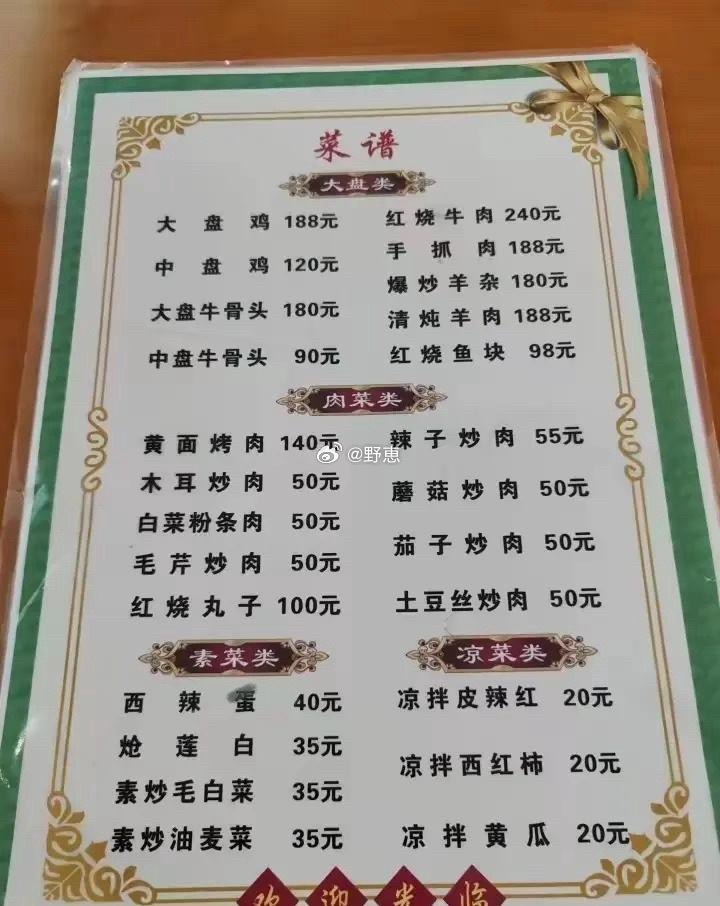 菜谱
大盘类
大盘鸡 188元
中盘鸡 120元
大盘牛骨头 180元
中盘牛骨头 90元
红烧牛肉 240元
手抓肉 188元
爆炒羊杂 180元
清炖羊肉 188元
红烧鱼块 98元
肉菜类
黄面烤肉 140元
木耳炒肉 50元
白菜粉条肉 50元
毛芹炒肉 50元
红烧丸子 100元
辣子炒肉 55元
蘑菇炒肉 50元
茄子炒肉 50元
土豆丝炒肉 50元
@野惠
素菜类
西辣蛋 40元
炝莲白 35元
素炒毛白菜 35元
素炒油麦菜 35元
凉菜类
凉拌皮辣红 20元
凉拌西红柿 20元
凉拌黄瓜 20元
欢迎光临